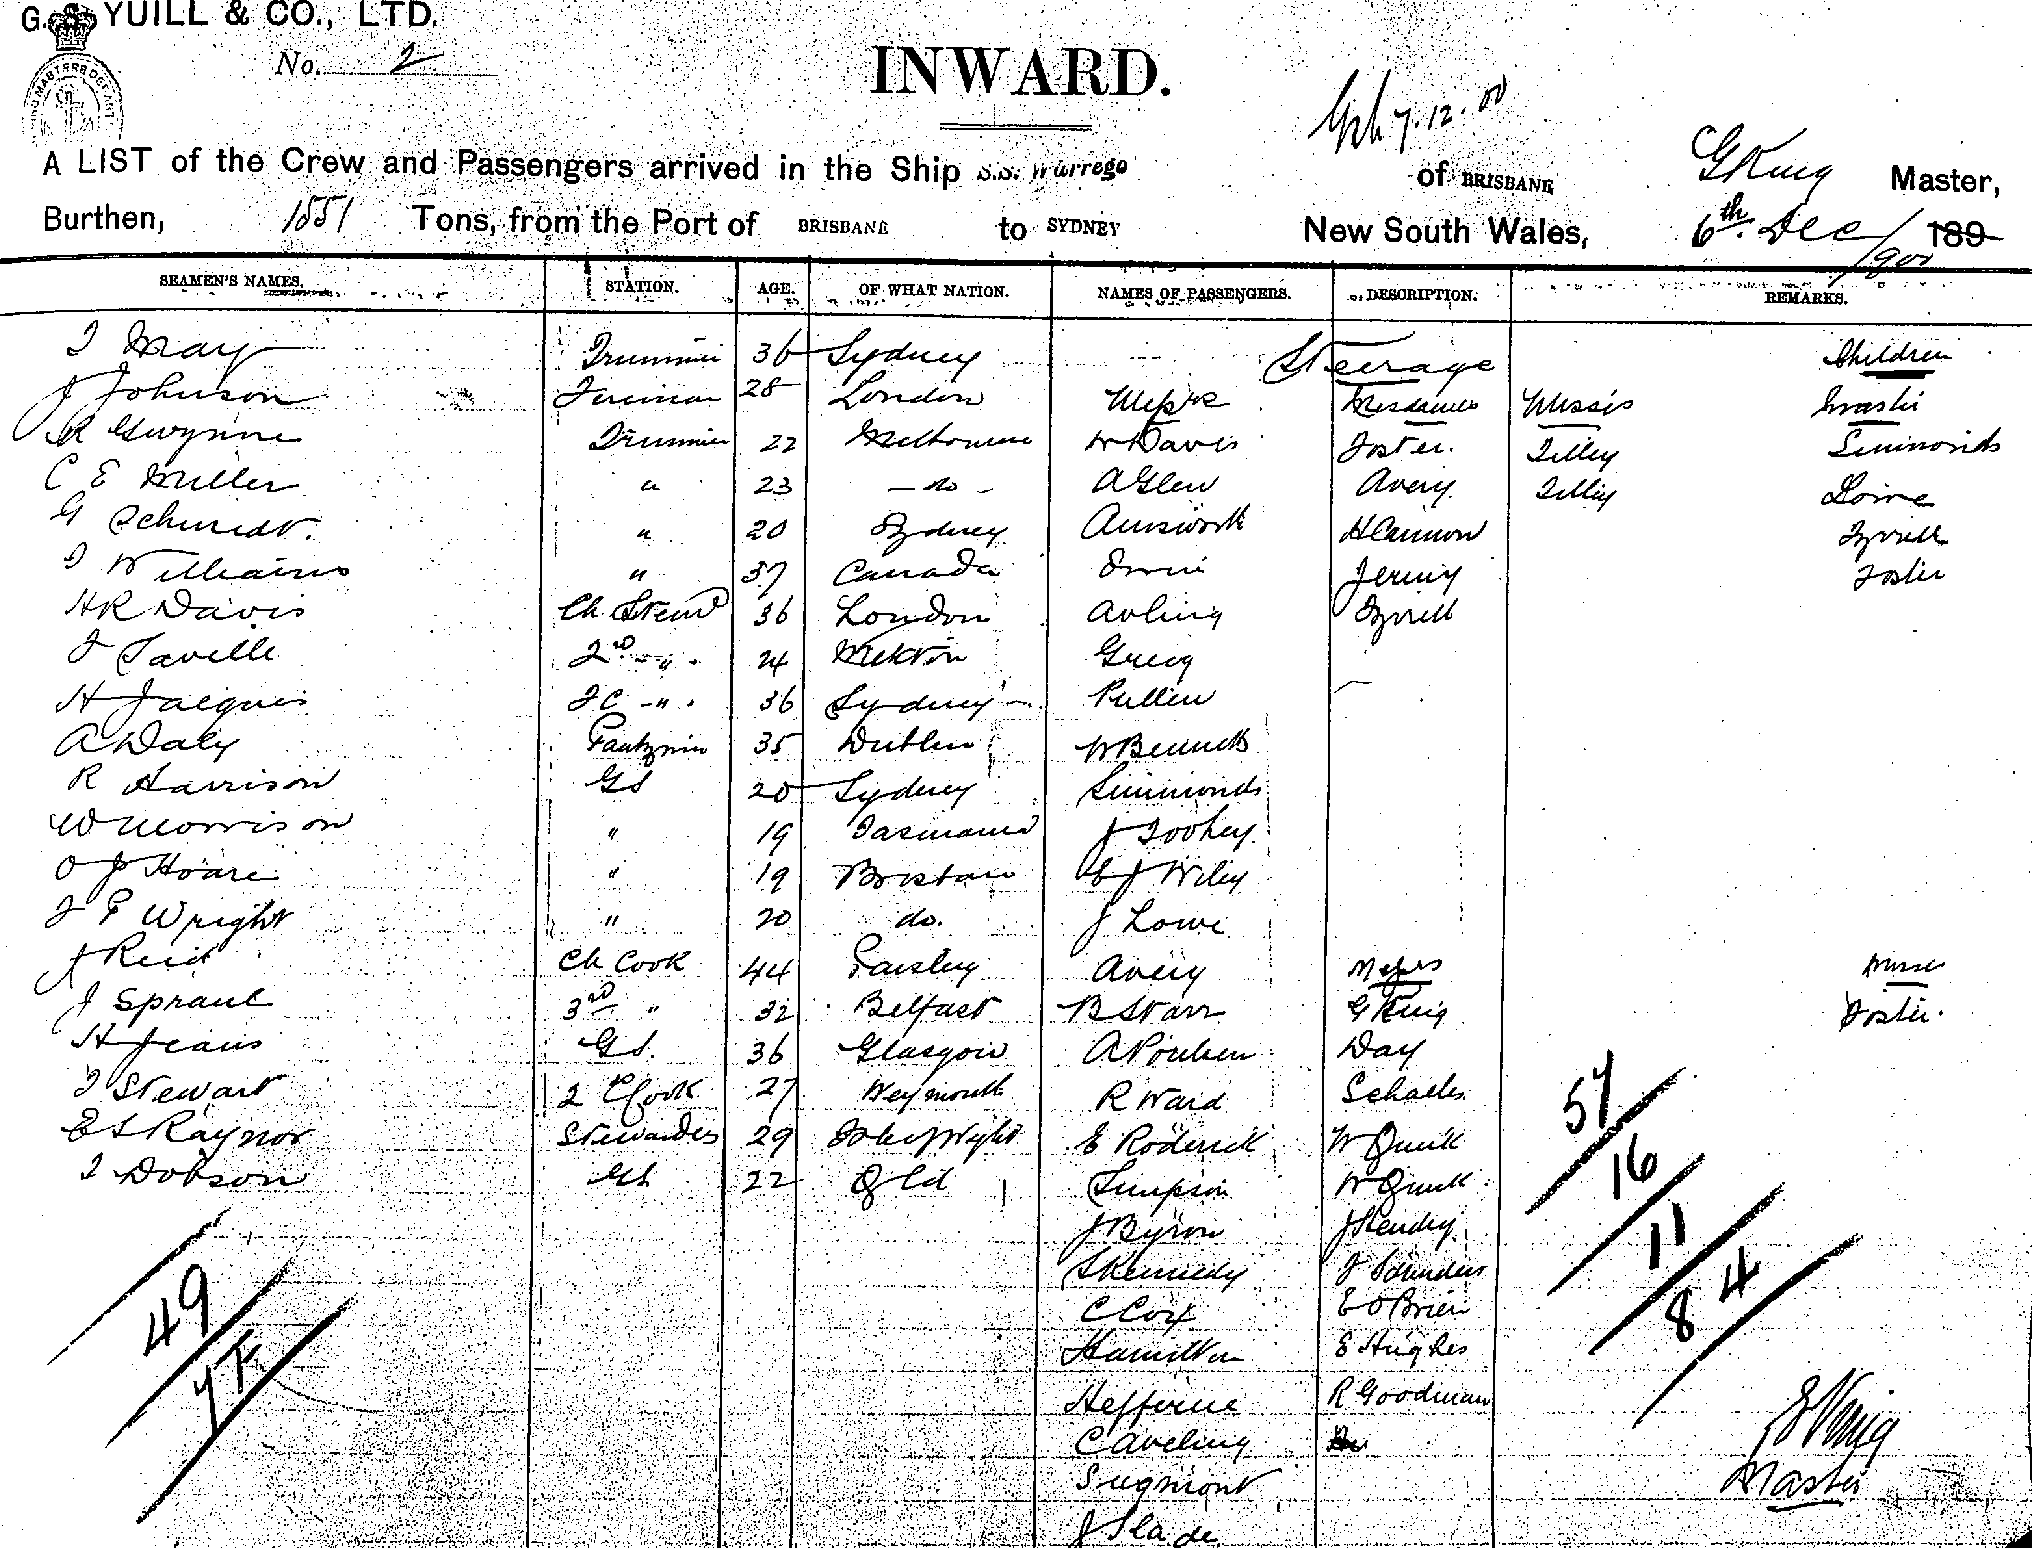 G. S. YUILL & CO., LTD.
No. 2
INWARD.
7.12.00
A LIST of the Crew and Passengers arrived in the Ship S.S. Warrego of BRISBANE G King Master,
Burthen, 1551 Tons, from the Port of BRISBANE to SYDNEY New South Wales, 6th Dec 189
1900
SEAMEN'S NAMES. STATION. AGE. OF WHAT NATION. NAMES OF PASSENGERS. DESCRIPTION. REMARKS.
T May Trimmer 36 Sydney Steerage Children
J Johnson Fireman 28 London Messrs Mesdames Misses Master
R Gwynne Trimmer 22 Melbourne W Davis Foster. Tilley Simmonds
C E Miller " 23 - do - A Glen Avery Tilley Lowe
G Schmidt. " 20 Sydney Ainsworth H Cannon Tyrrell
T Williams " 37 Canada Irvine Jermy Foster
H R Davis Ch Stewd 36 London Avling Tyrrell
F Saville 2nd - " - 24 Greig
H Jacques FC - " . 36 Sydney Pullen
A Daly Pantryman 35 Dublin W Bennett
R Harrison GS 20 Sydney Simmonds
W Morrison " 19 Tasmania J Toohey
O J Hoare " 19 Brisbane E J Wiley
F P Wright " 20 do. J Lowe
J Reid Ch Cook 44 Paisley Avery Messrs Misses
J Spraul 3rd " 32 Belfast B Starr G King Foster.
H Jeans GS. 36 Glasgow A Poulsen Day
T Stewart 2 Cook 27 Weymouth R Ward
E S Raynor Stewardess 29 Isle of Wight E Roderick W Quirk
T Dobson GS 22 Qld Simpson W Quirk
J Byron J Hendry
S Kennedy F Saunders
C Cox E O'Brien
Hamilton E Hughes
Hefferine R Goodman
C Aveling
Sugmont
J Slade
49
57
16
11
8 4
G King
Master